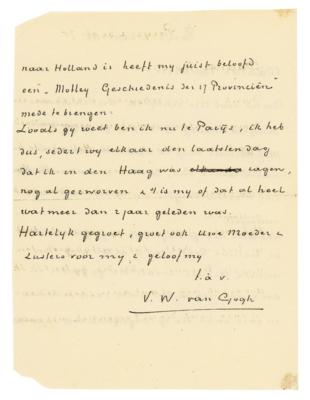 naar Holland is heeft my juist beloofd
een „Motley Geschiedenis der 17 Provinciën”
mede te brengen.
Zooals gy weet ben ik nu te Parijs, ik heb
dus, sedert wy elkaar den laatsten dag
dat ik in den Haag was elkander zagen,
nog al gezworven & 't is my of dat al heel
wat meer dan 2 jaar geleden was.
Hartelyk gegroet, groet ook Uwe Moeder &
Zusters voor my, & geloof my
t. à v.
V. W. van Gogh